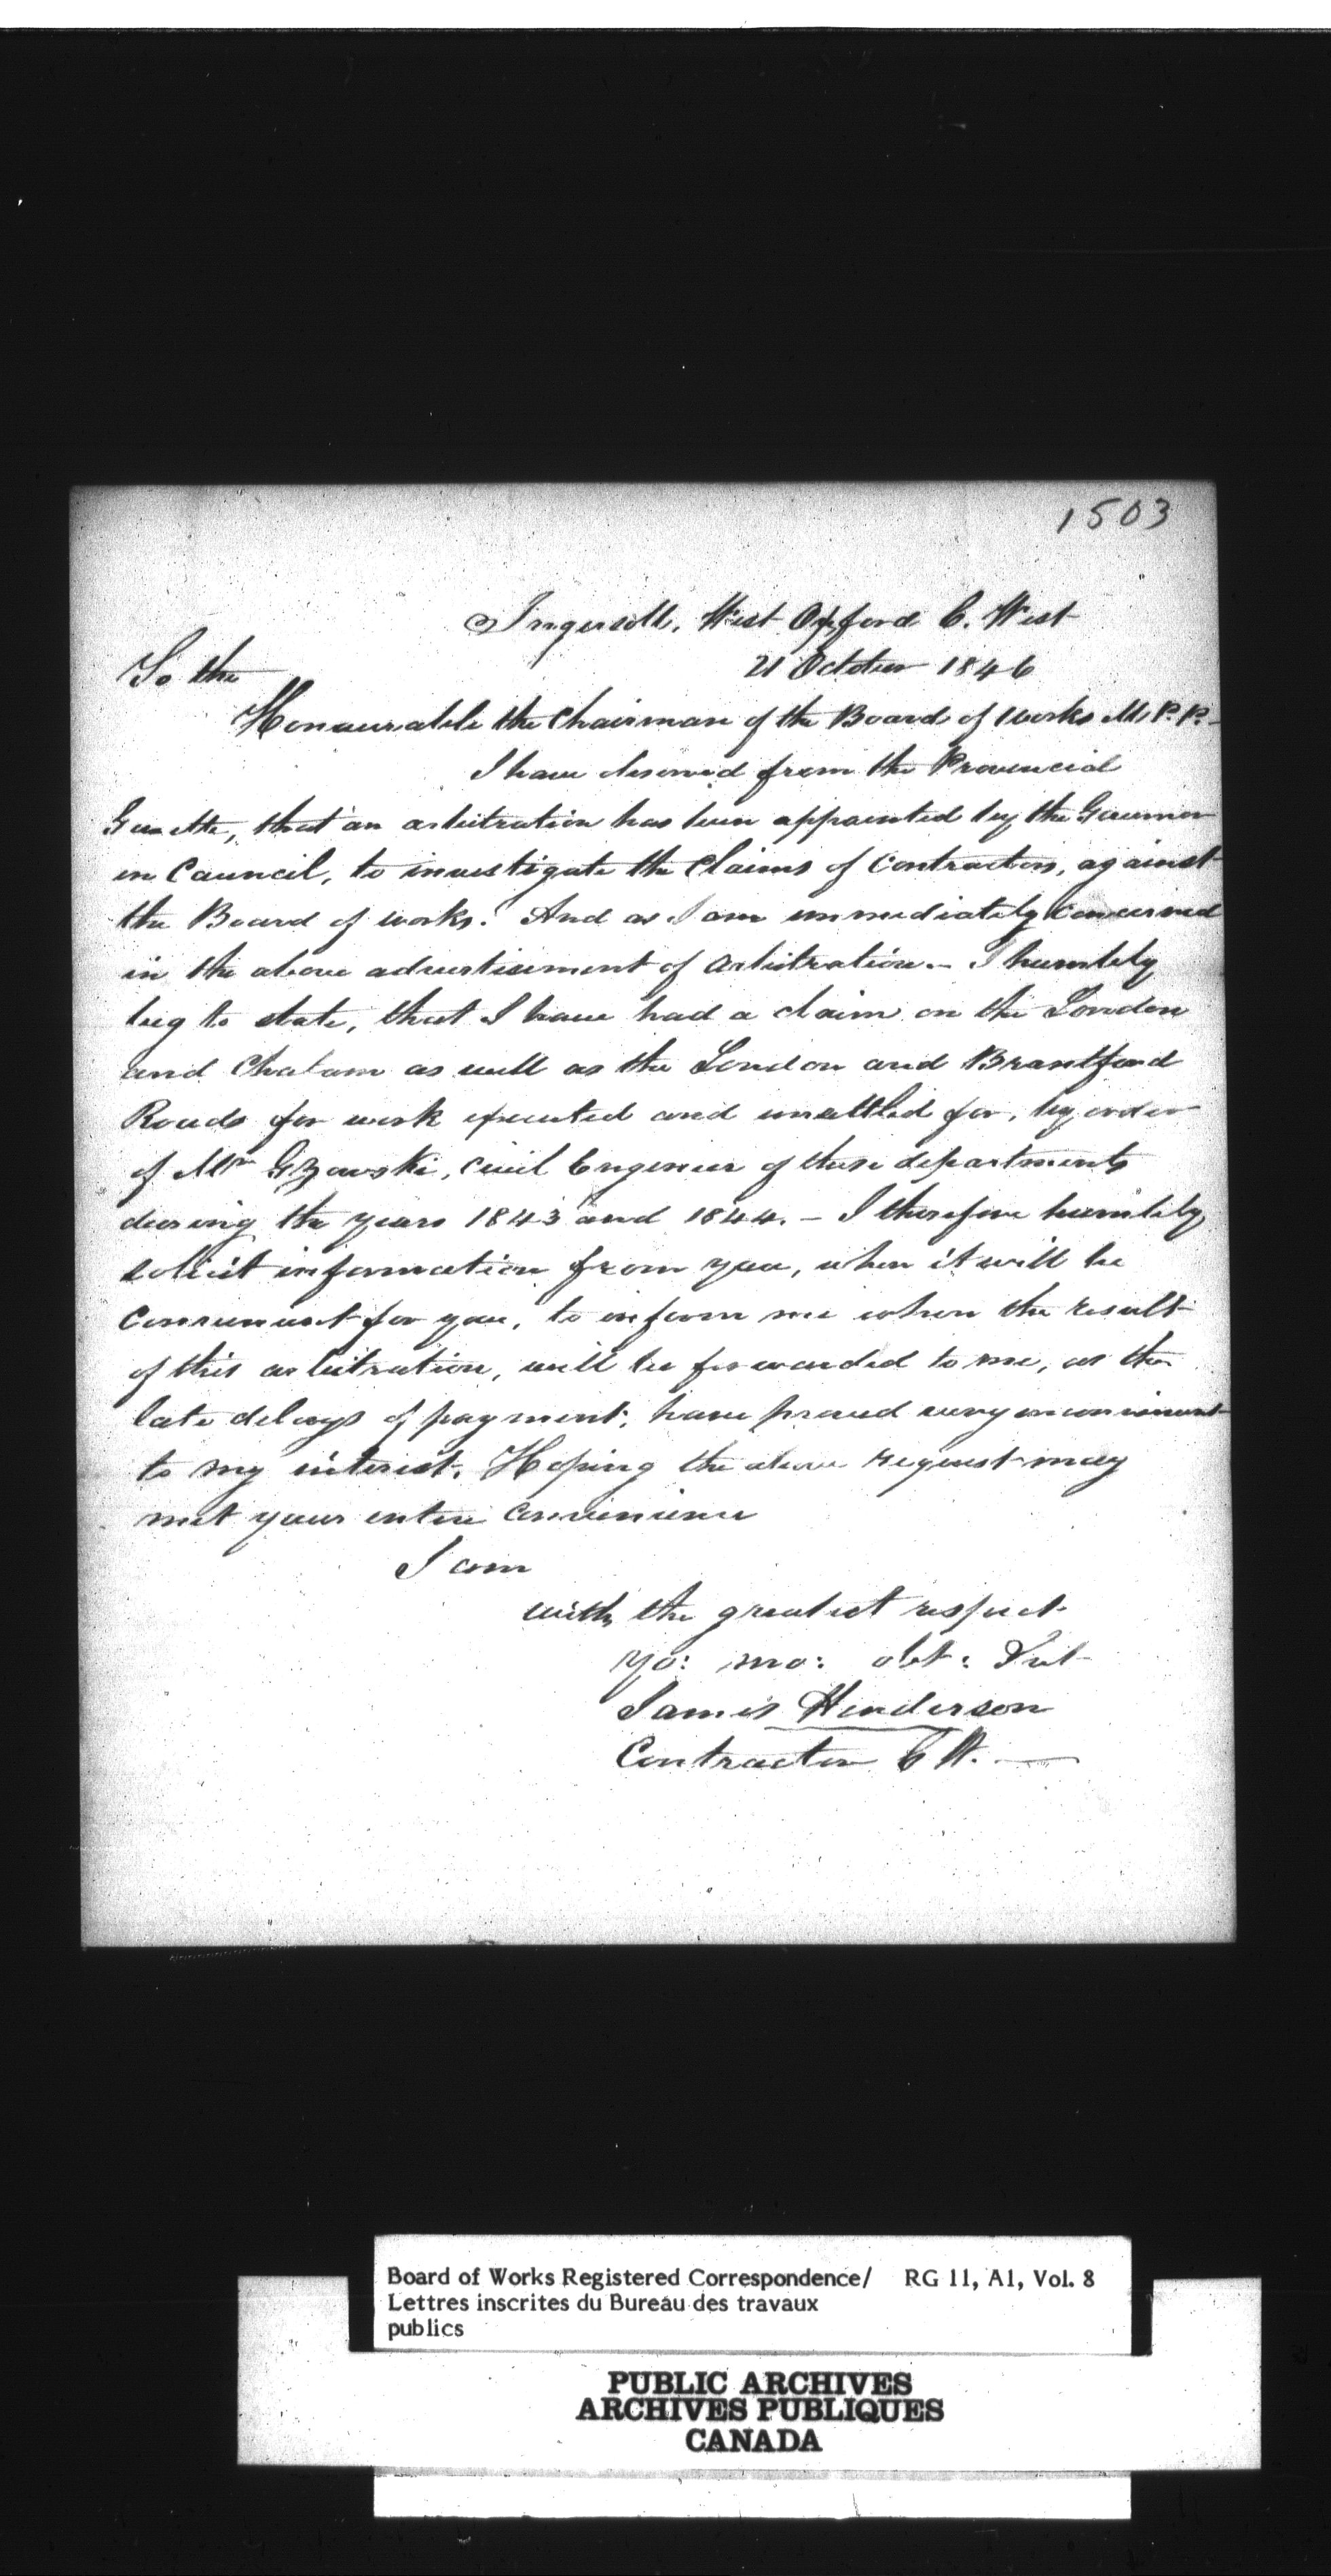 1503
Ingersoll, West Oxford C. West
To the 21 October 1846
Honourable the Chairman of the Board of Works M.P.P.
I have observed from the Provencial
Gazette, that an arbitration has been appointed by the Governor
in Council, to investigate the Claims of Contractors, against
the Board of Works. And as I am immediately concerned
in the above advertisement of Arbitration. – I humbly
beg to state, that I have had a claim on the London
and Chatam as well as the London and Brantford
Roads for work executed and unsettled for, by order
of Mr Gzowski, Civil Engineer of these departments
during the years 1843 and 1844. – I therefore humbly
solicit information from you, when it will be
Convenient for you, to inform me when the result
of this arbitration, will be forwarded to me, as the
late delays of payment, have proved very inconvenient
to my interest. Hoping the above request may
meet your entire Convenience
I am
with the greatest respect
yo: mo: obt: Svt
James Henderson
Contractor C W. —
Board of Works Registered Correspondence/ RG 11, A1, Vol. 8
Lettres inscrites du Bureau des travaux
publics
PUBLIC ARCHIVES
ARCHIVES PUBLIQUES
CANADA